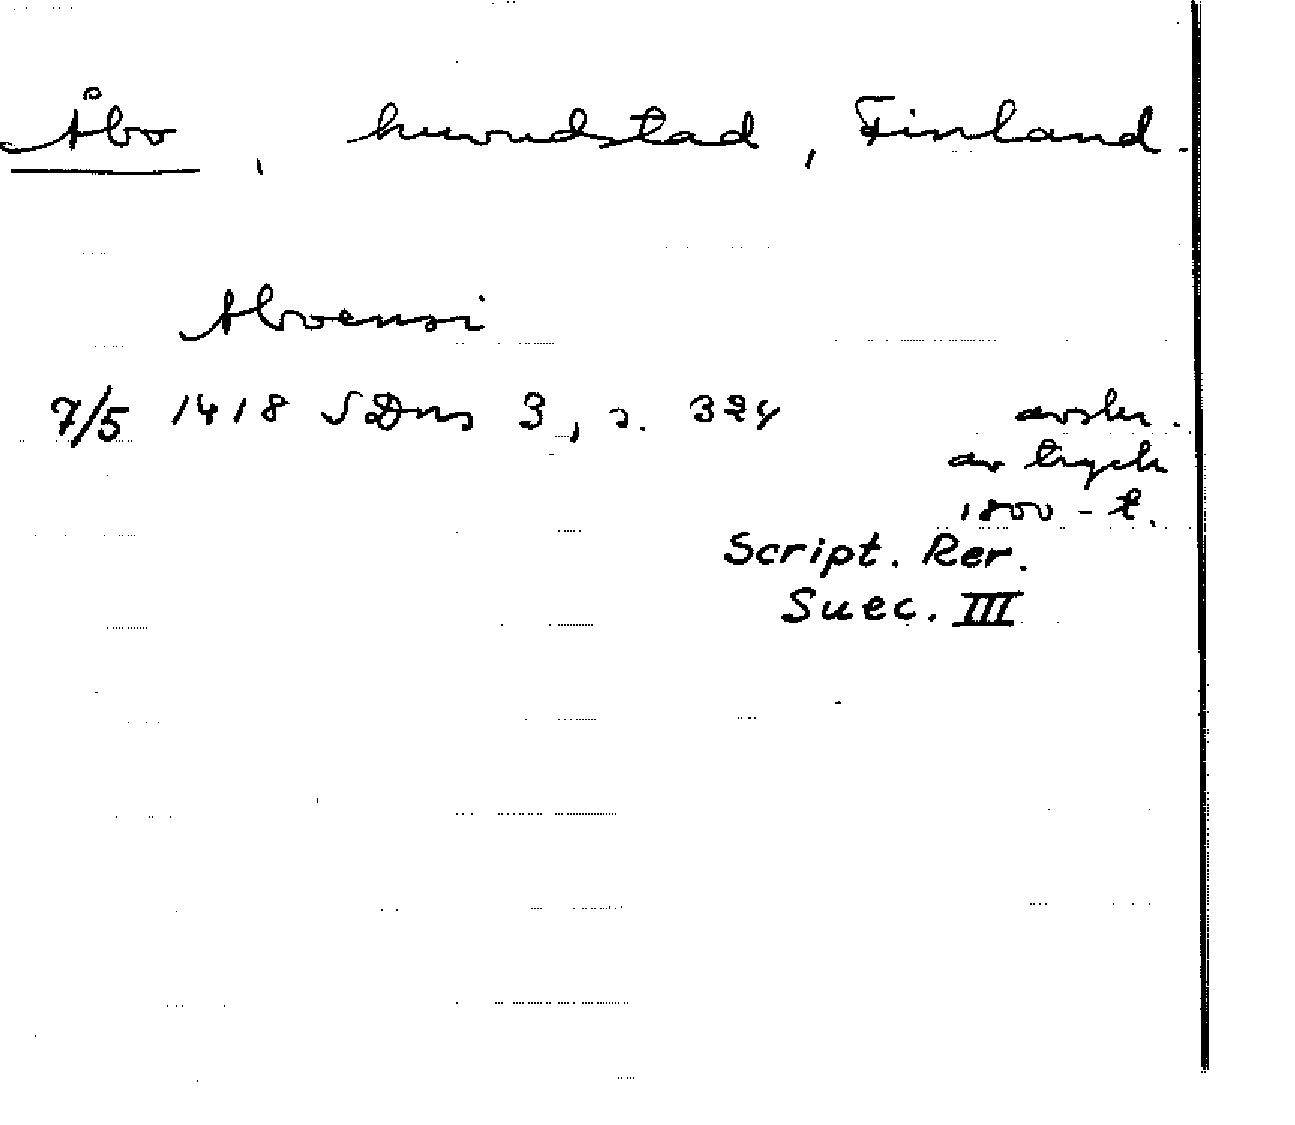 Åbo, huvudstad, Finland.
Aboensi
7/5 1418 SDns 3, s. 324 avskr.
av tryck
1800-t.
Script. Rer.
Suec. III